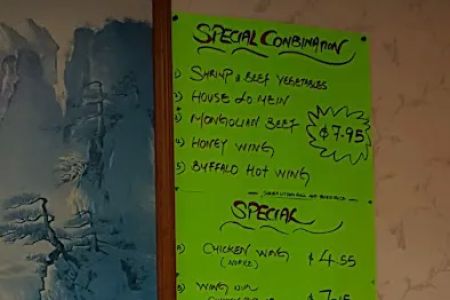 SPECIAL COMBINATION
1) SHRIMP & BEEF VEGETABLES
2) HOUSE LO MEIN
3) MONGOLIAN BEEF
$7.95
4) HONEY WING
5) BUFFALO HOT WING
SPECIAL
CHICKEN WING
$4.55
WING